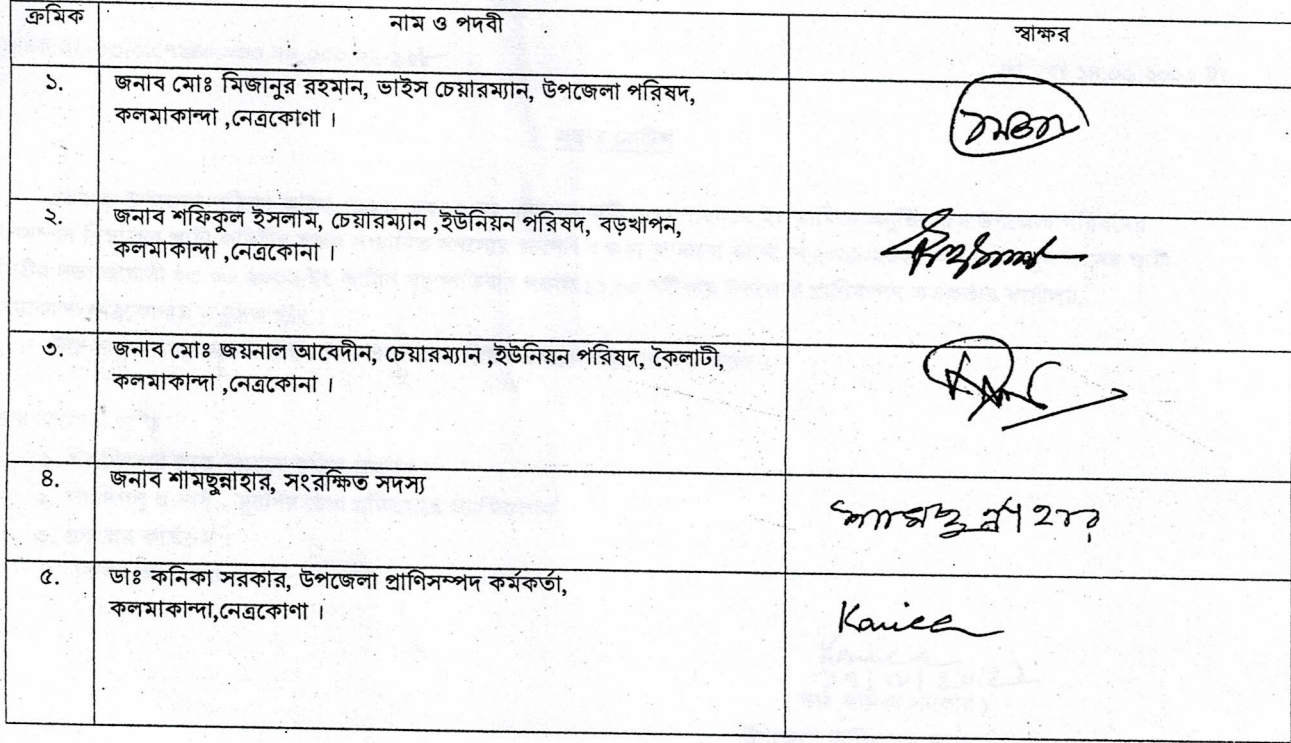 ক্রমিক নাম ও পদবী স্বাক্ষর
১. জনাব মোঃ মিজানুর রহমান, ভাইস চেয়ারম্যান, উপজেলা পরিষদ,
কলমাকান্দা ,নেত্রকোণা ।
২. জনাব শফিকুল ইসলাম, চেয়ারম্যান ,ইউনিয়ন পরিষদ, বড়খাপন,
কলমাকান্দা ,নেত্রকোনা ।
৩. জনাব মোঃ জয়নাল আবেদীন, চেয়ারম্যান ,ইউনিয়ন পরিষদ, কৈলাটী,
কলমাকান্দা ,নেত্রকোনা ।
৪. জনাব শামছুন্নাহার, সংরক্ষিত সদস্য শামছুন্নাহার
৫. ডাঃ কনিকা সরকার, উপজেলা প্রাণিসম্পদ কর্মকর্তা,
কলমাকান্দা,নেত্রকোণা । Kanica